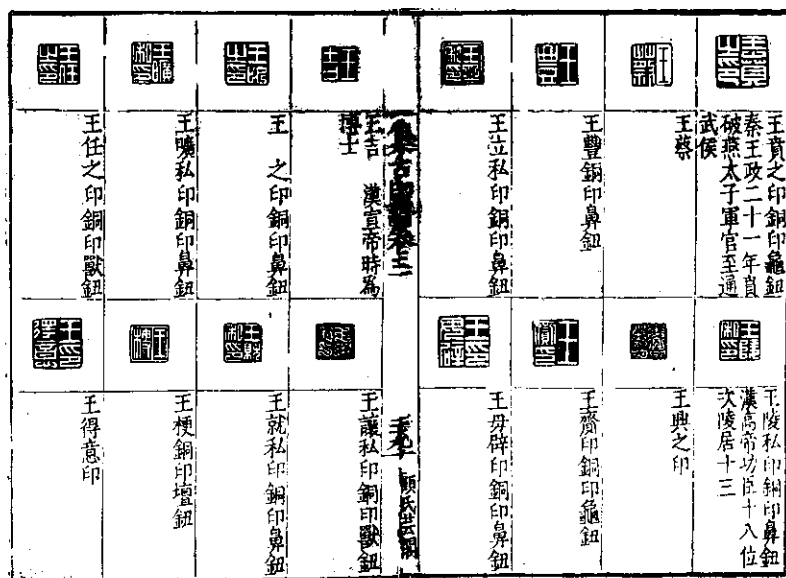 王賁之印銅印龜鈕
秦王政二十一年賁
破燕太子軍官至通
武侯
王蔡
王豐銅印鼻鈕
王立私印銅印鼻鈕
王陵私印銅印鼻鈕
漢高帝功臣十八位
次陵居十三
王興之印
王齎印銅印龜鈕
王毋辟印銅印鼻鈕
集古印譜卷三
顧氏芸閣
王吉 漢宣帝時為
博士
王 之印銅印鼻鈕
王曠私印銅印鼻鈕
王任之印銅印獸鈕
王讓私印銅印獸鈕
王就私印銅印鼻鈕
王梗銅印壇鈕
王得意印